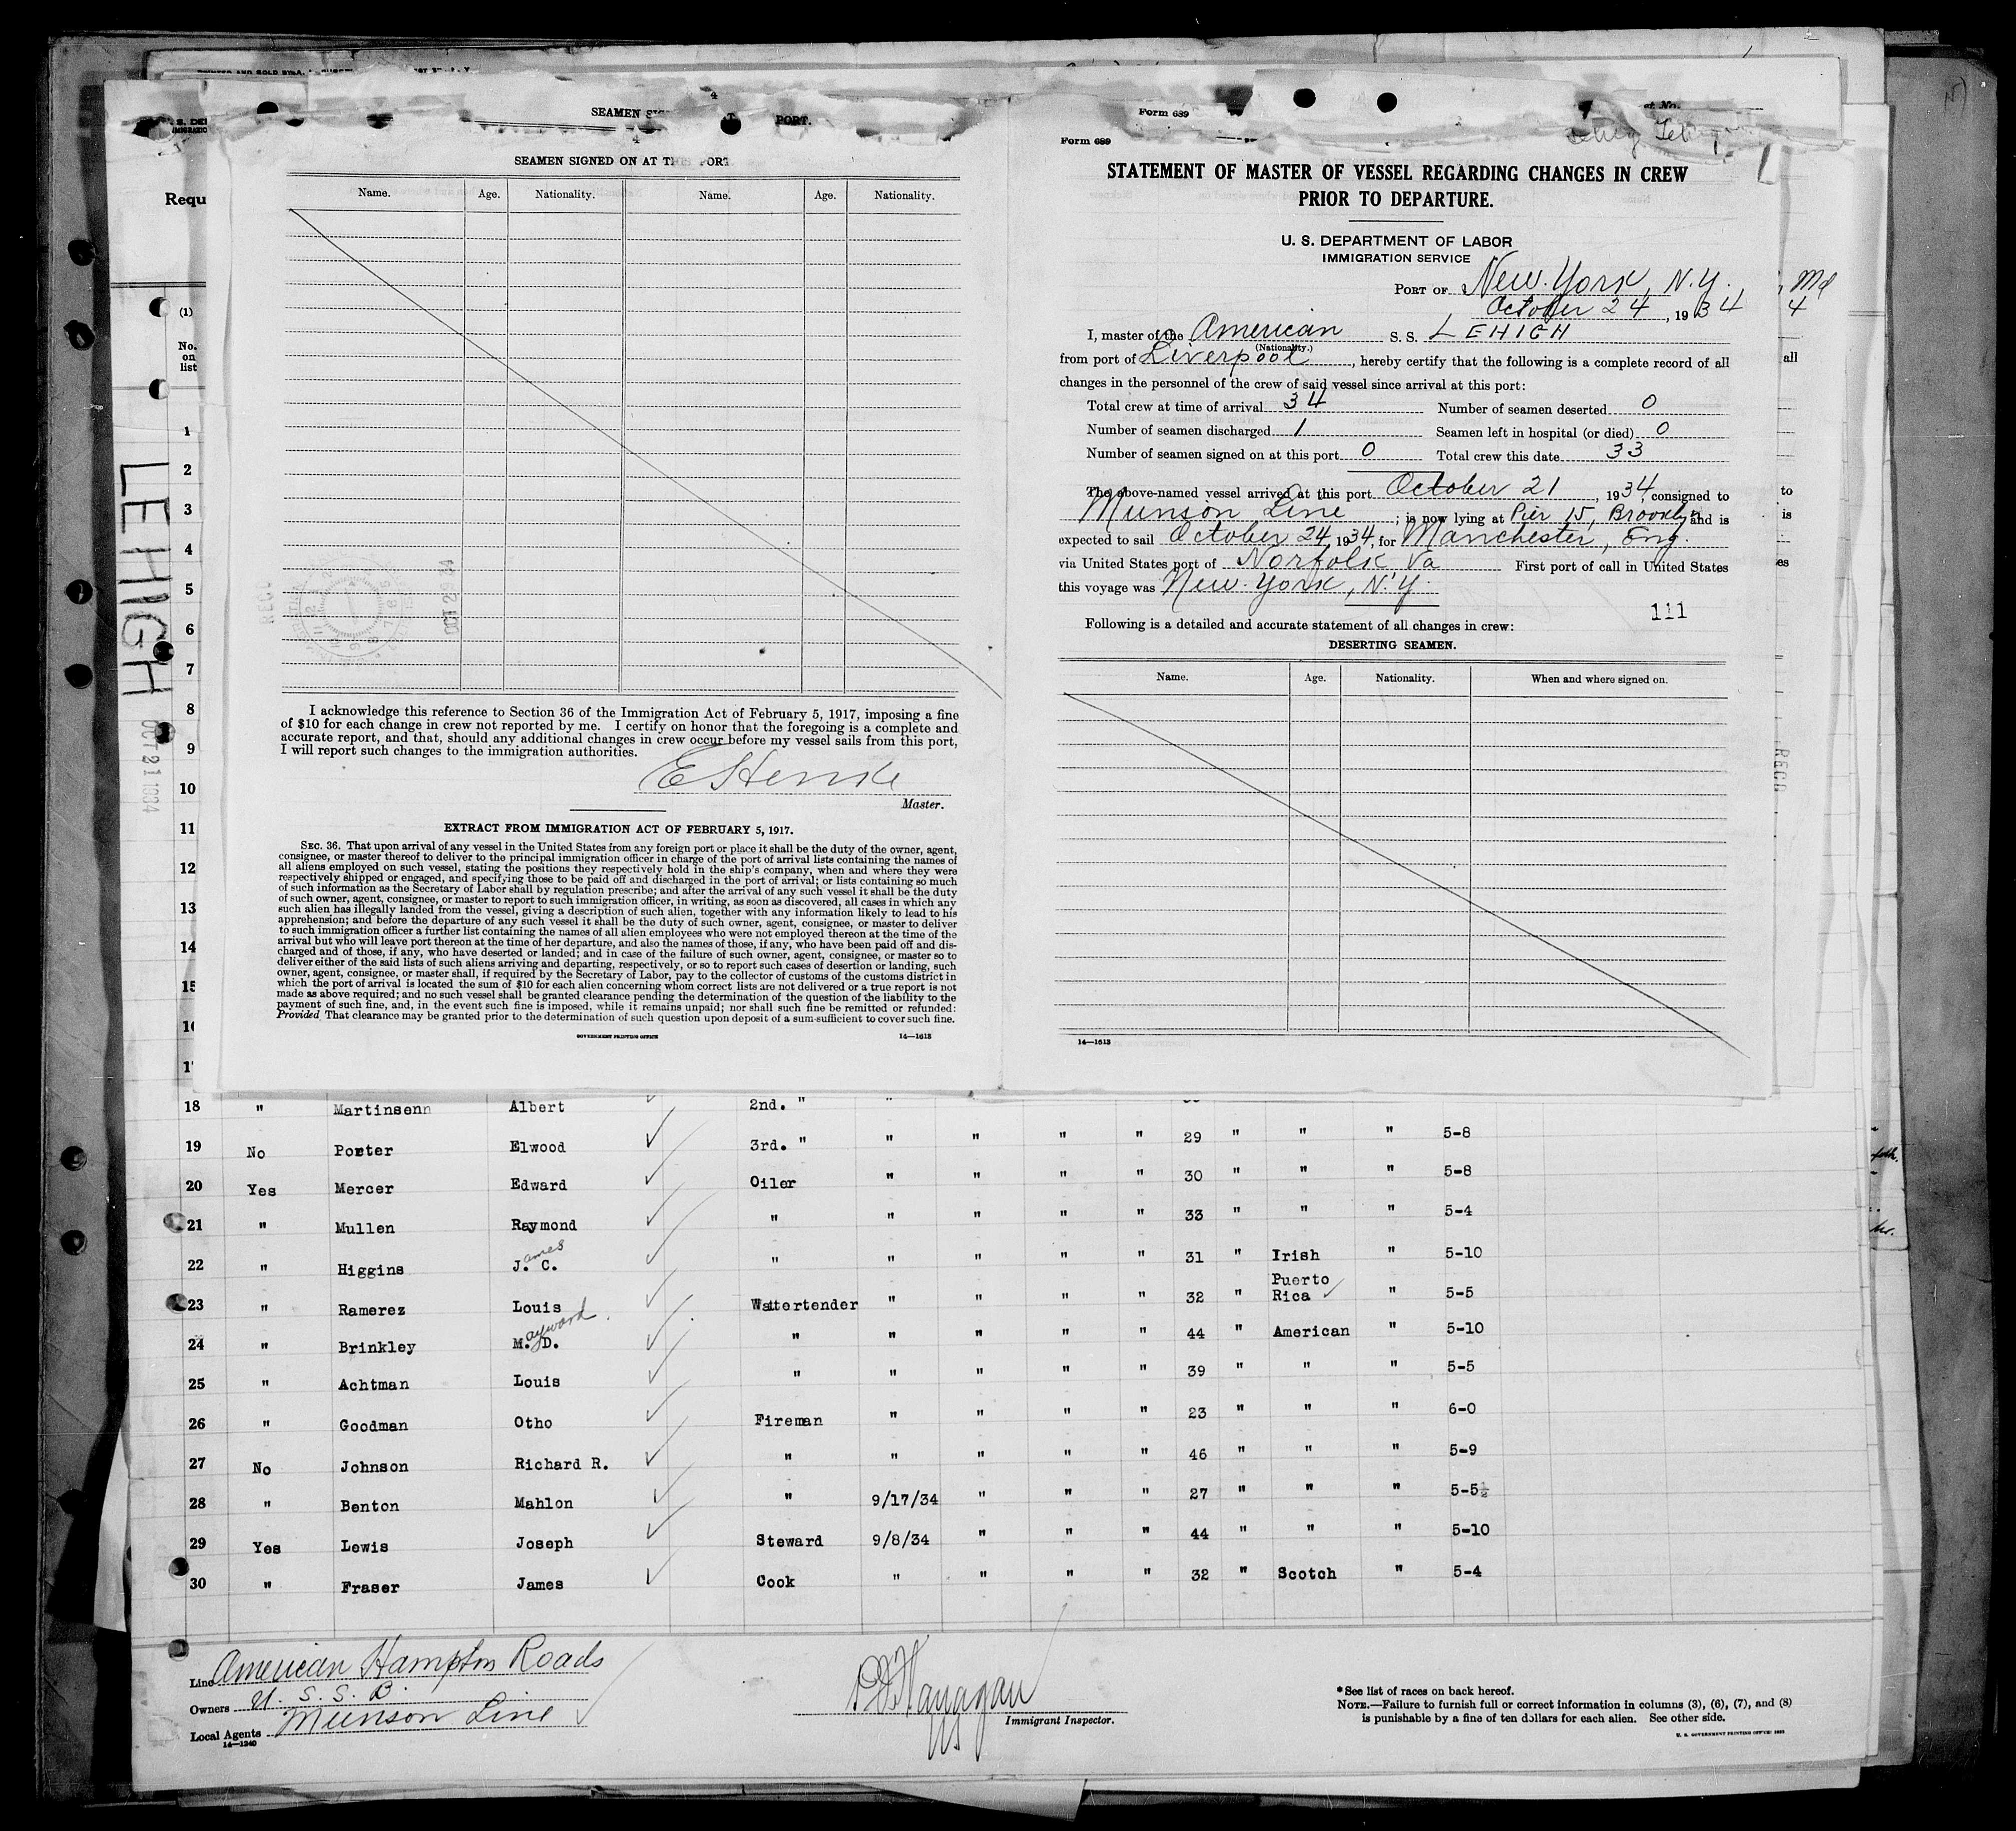 SEAMEN
PORT.
4
SEAMEN SIGNED ON AT THIS PORT
Name. Age. Nationality. Name. Age. Nationality.
I acknowledge this reference to Section 36 of the Immigration Act of February 5, 1917, imposing a fine
of $10 for each change in crew not reported by me. I certify on honor that the foregoing is a complete and
accurate report, and that, should any additional changes in crew occur before my vessel sails from this port,
I will report such changes to the immigration authorities.
Master.
EXTRACT FROM IMMIGRATION ACT OF FEBRUARY 5, 1917.
SEC. 36. That upon arrival of any vessel in the United States from any foreign port or place it shall be the duty of the owner, agent,
consignee, or master thereof to deliver to the principal immigration officer in charge of the port of arrival lists containing the names of
all aliens employed on such vessel, stating the positions they respectively hold in the ship's company, when and where they were
respectively shipped or engaged, and specifying those to be paid off and discharged in the port of arrival; or lists containing so much
of such information as the Secretary of Labor shall by regulation prescribe; and after the arrival of any such vessel it shall be the duty
of such owner, agent, consignee, or master to report to such immigration officer, in writing, as soon as discovered, all cases in which any
such alien has illegally landed from the vessel, giving a description of such alien, together with any information likely to lead to his
apprehension; and before the departure of any such vessel it shall be the duty of such owner, agent, consignee, or master to deliver
to such immigration officer a further list containing the names of all alien employees who were not employed thereon at the time of the
arrival but who will leave port thereon at the time of her departure, and also the names of those, if any, who have been paid off and dis-
charged and of those, if any, who have deserted or landed; and in case of the failure of such owner, agent, consignee, or master so to
deliver either of the said lists of such aliens arriving and departing, respectively, or so to report such cases of desertion or landing, such
owner, agent, consignee, or master shall, if required by the Secretary of Labor, pay to the collector of customs of the customs district in
which the port of arrival is located the sum of $10 for each alien concerning whom correct lists are not delivered or a true report is not
made as above required; and no such vessel shall be granted clearance pending the determination of the question of the liability to the
payment of such fine, and, in the event such fine is imposed, while it remains unpaid; nor shall such fine be remitted or refunded:
Provided That clearance may be granted prior to the determination of such question upon deposit of a sum sufficient to cover such fine.
GOVERNMENT PRINTING OFFICE 14—1613
Form 689
Form 689
STATEMENT OF MASTER OF VESSEL REGARDING CHANGES IN CREW
PRIOR TO DEPARTURE.
U. S. DEPARTMENT OF LABOR
IMMIGRATION SERVICE
PORT OF New York, N.Y.
October 24, 1934
I, master of the American S. S. LEHIGH
(Nationality.)
from port of Liverpool, hereby certify that the following is a complete record of all
changes in the personnel of the crew of said vessel since arrival at this port:
Total crew at time of arrival 34 Number of seamen deserted 0
Number of seamen discharged 1 Seamen left in hospital (or died) 0
Number of seamen signed on at this port 0 Total crew this date 33
The above-named vessel arrived at this port October 21, 1934, consigned to
Munson Line; is now lying at Pier 15, Brooklyn and is
expected to sail October 24, 1934, for Manchester, Eng.
via United States port of Norfolk Va First port of call in United States
this voyage was New York, N.Y.
111
Following is a detailed and accurate statement of all changes in crew:
DESERTING SEAMEN.
Name. Age. Nationality. When and where signed on.
14—1613
Md
4
all
to
is
Requ
(1)
No. on list
LEHIGH
OCT 21 1934
1
2
3
4
5
6
7
8
9
10
11
12
13
14
15
18 " Martinsenn Albert 2nd. " "
19 No Porter Elwood 3rd. " " " " " 29 " " " 5-8
20 Yes Mercer Edward Oiler " " " " 30 " " " 5-8
21 " Mullen Raymond " " " " " 33 " " " 5-4
22 " Higgins J.ames C. " " " " " 31 " Irish " 5-10
23 " Ramerez Louis Wattertender " " " " 32 " Puerto Rica " 5-5
24 " Brinkley M.ayward D. " " " " " 44 " American " 5-10
25 " Achtman Louis " " " " " 39 " " " 5-5
26 " Goodman Otho Fireman " " " " 23 " " " 6-0
27 No Johnson Richard R. " " " " " 46 " " " 5-9
28 " Benton Mahlon " 9/17/34 " " " 27 " " " 5-5½
29 Yes Lewis Joseph Steward 9/8/34 " " " 44 " " " 5-10
30 " Fraser James Cook " " " " 32 " Scotch " 5-4
Line American Hampton Roads
Owners U. S. S. B.
Local Agents Munson Line
14—1240
Immigrant Inspector.
*See list of races on back hereof.
NOTE.—Failure to furnish full or correct information in columns (3), (6), (7), and (8)
is punishable by a fine of ten dollars for each alien. See other side.